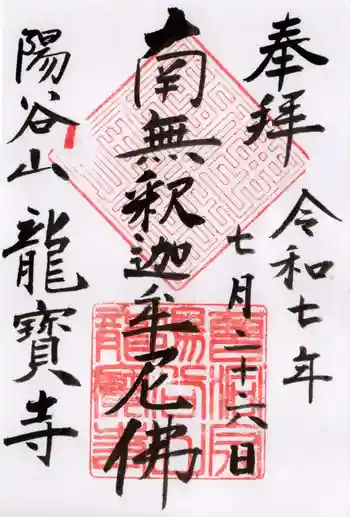 奉拝
令和七年
七月二十六日
南無釈迦牟尼佛
陽谷山 龍寶寺